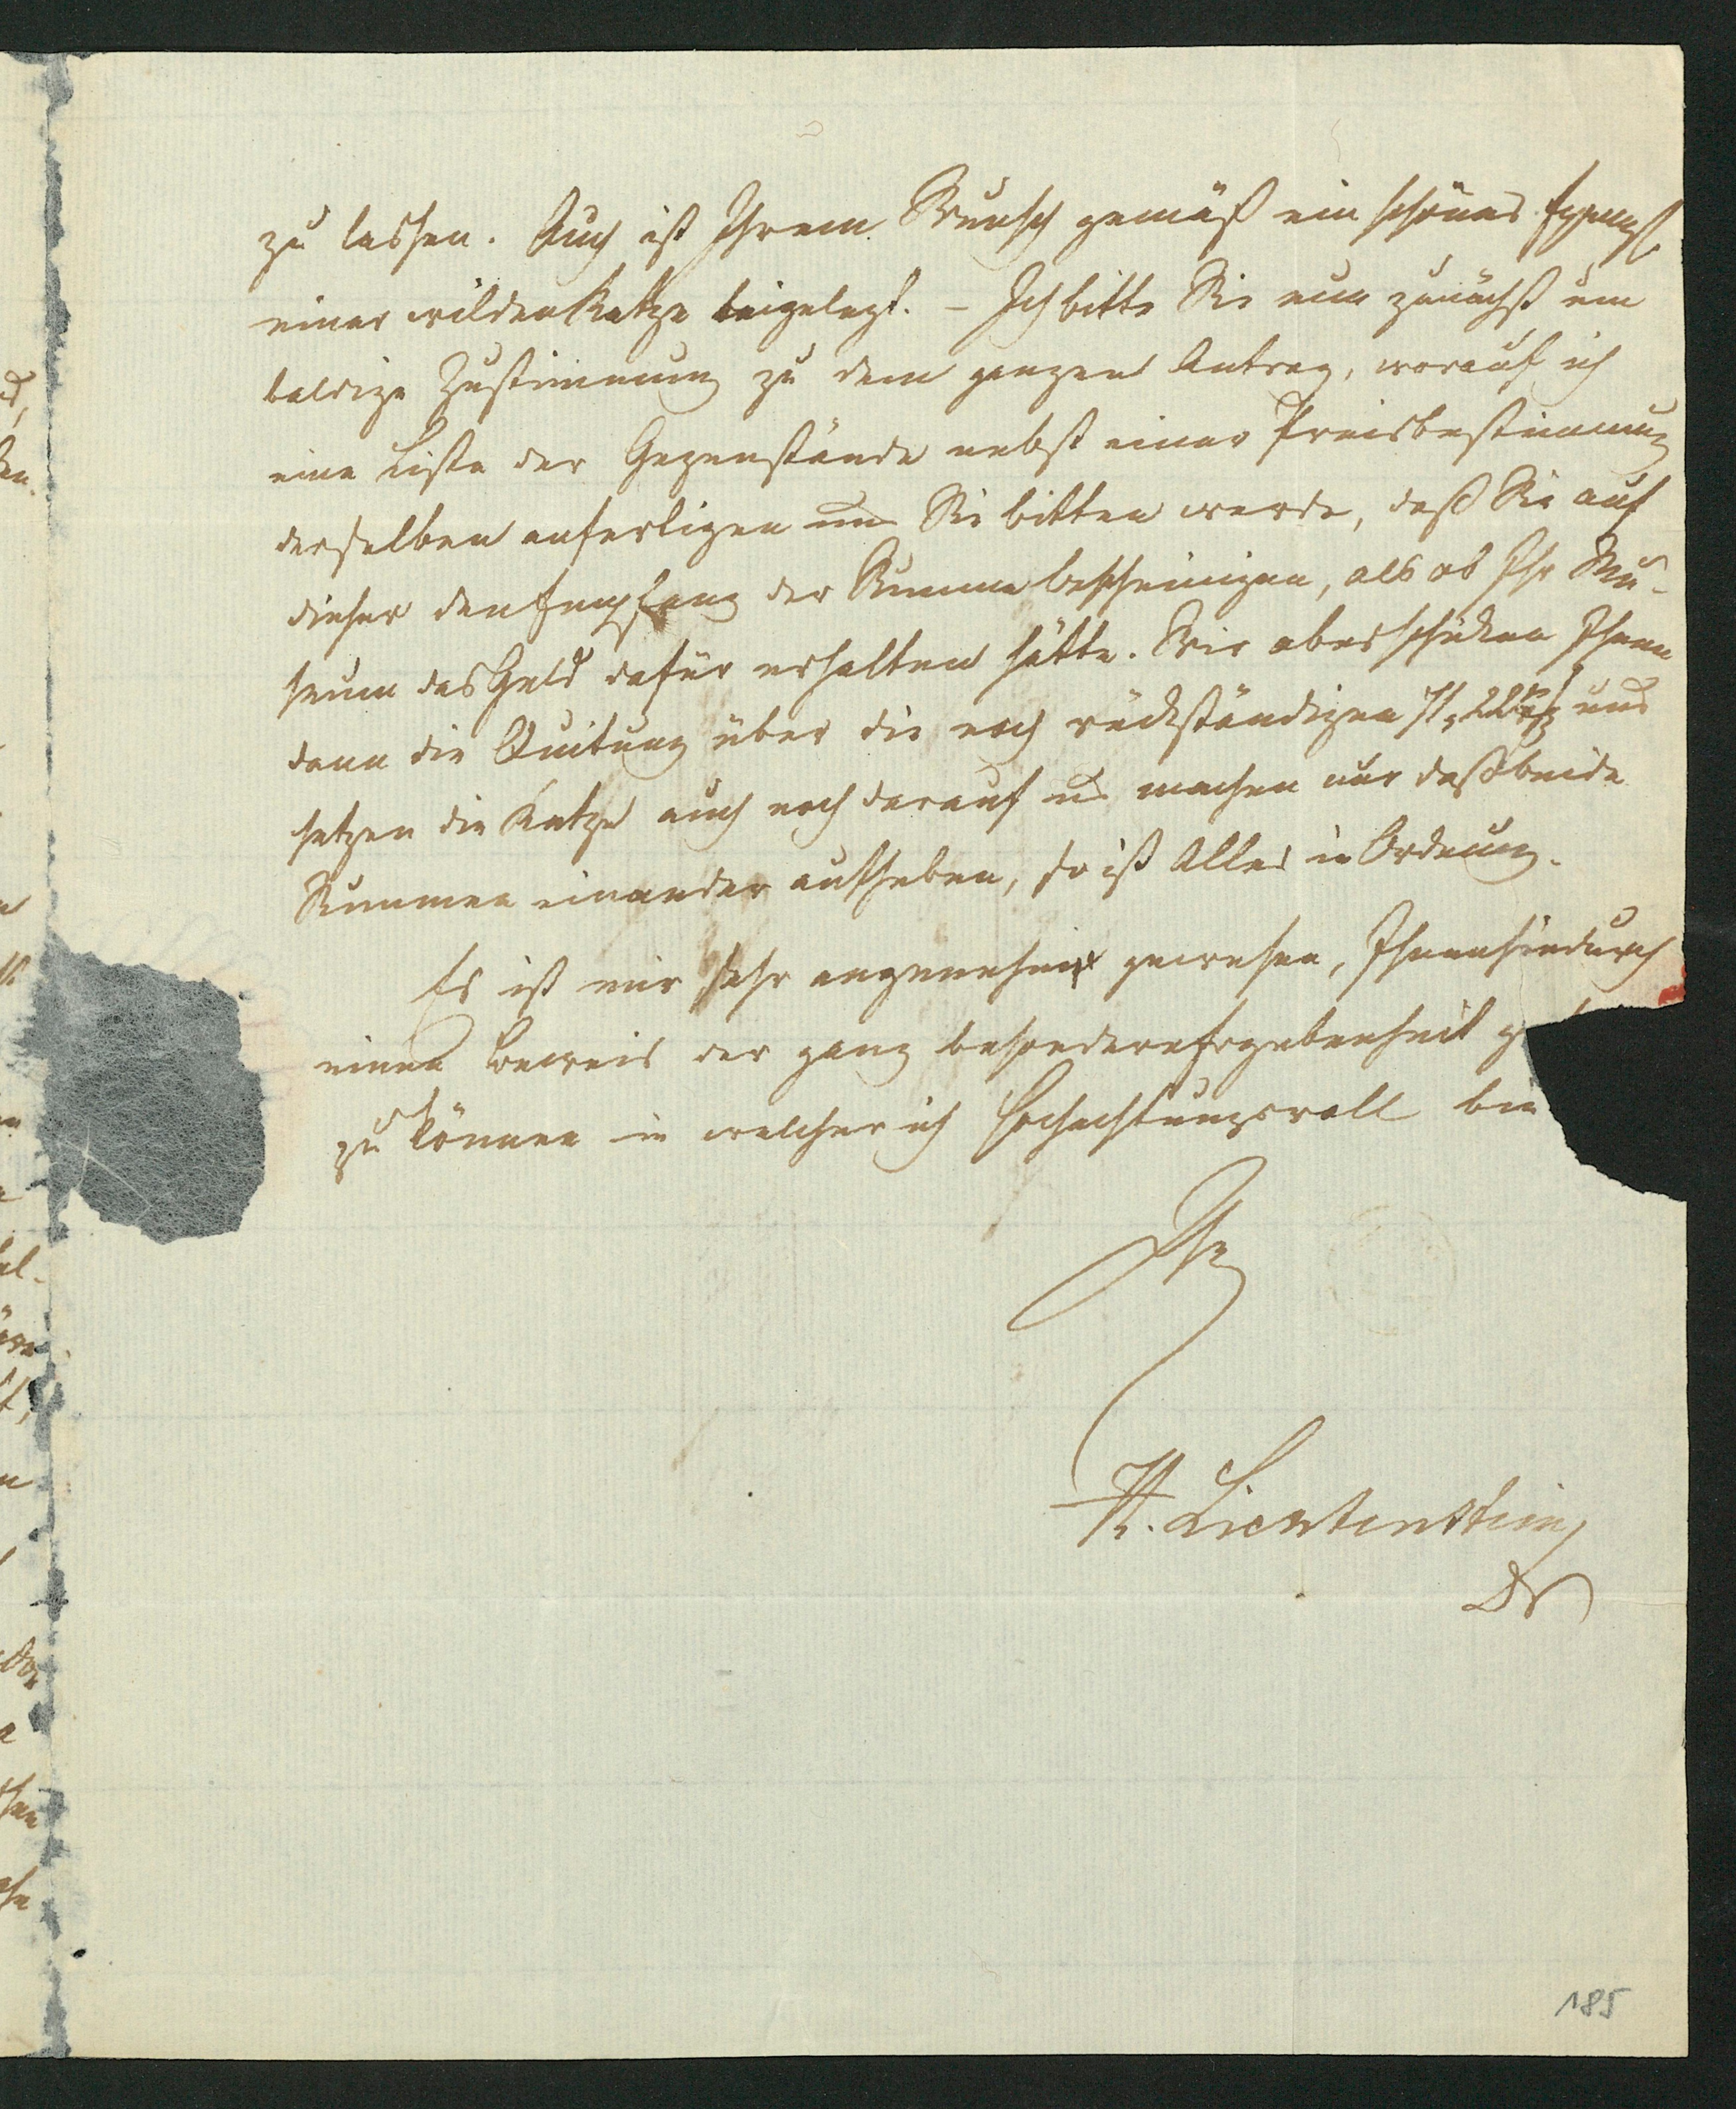 zu lassen. Auch ist Ihrem Wunsch gemäß ein schönes Exempl.
einer wilden Katze beigelegt. – Ich bitte Sie nun zunächst um
baldige Zustimmung zu dem ganzen Antrag, worauf ich
eine Liste der Gegenstände nebst einer Preisbestimmung
derselben anfertigen und Sie bitten werde, daß Sie auf
dieser den Empfang der Summe bescheinigen, als ob Ihr Mu-
seum das Geld dafür erhalten hätte. Wir aber schicken Ihnen
dann die Quitung über die noch rückständigen und
setzen die Katze auch noch darauf und machen nur daß beide
Summen einander aufheben, so ist Alles in Ordnung.
Es ist mir sehr angenehm gewesen, Ihnen hiedurch
einen Beweis der ganz besondern Ergebenheit
zu können in welcher ich Hochachtungsvoll bin
Ihr
H. Lichtenstein
Dr
185